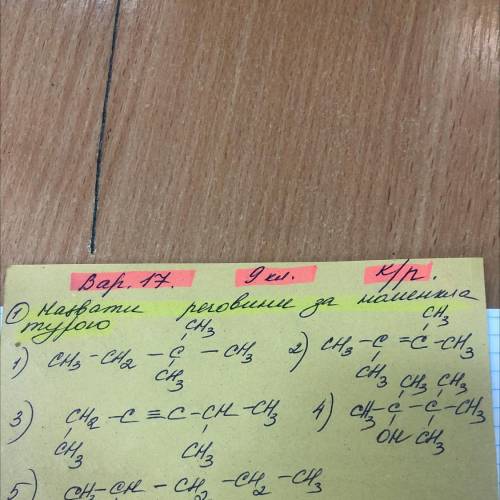 Вар. 17. 9 кл. К/р.
① Назвати речовини за номенкла
турою
CH₃
1) CH₃ - CH₂ - C - CH₃
CH₃
CH₃
2) CH₃ - C = C - CH₃
CH₃
3) CH₂ - C ≡ C - CH - CH₃
CH₃ CH₃
CH₃ CH₃
4) CH₃ - C - C - CH₃
OH CH₃
5) CH - CH - CH₂ - CH₂ - CH₃